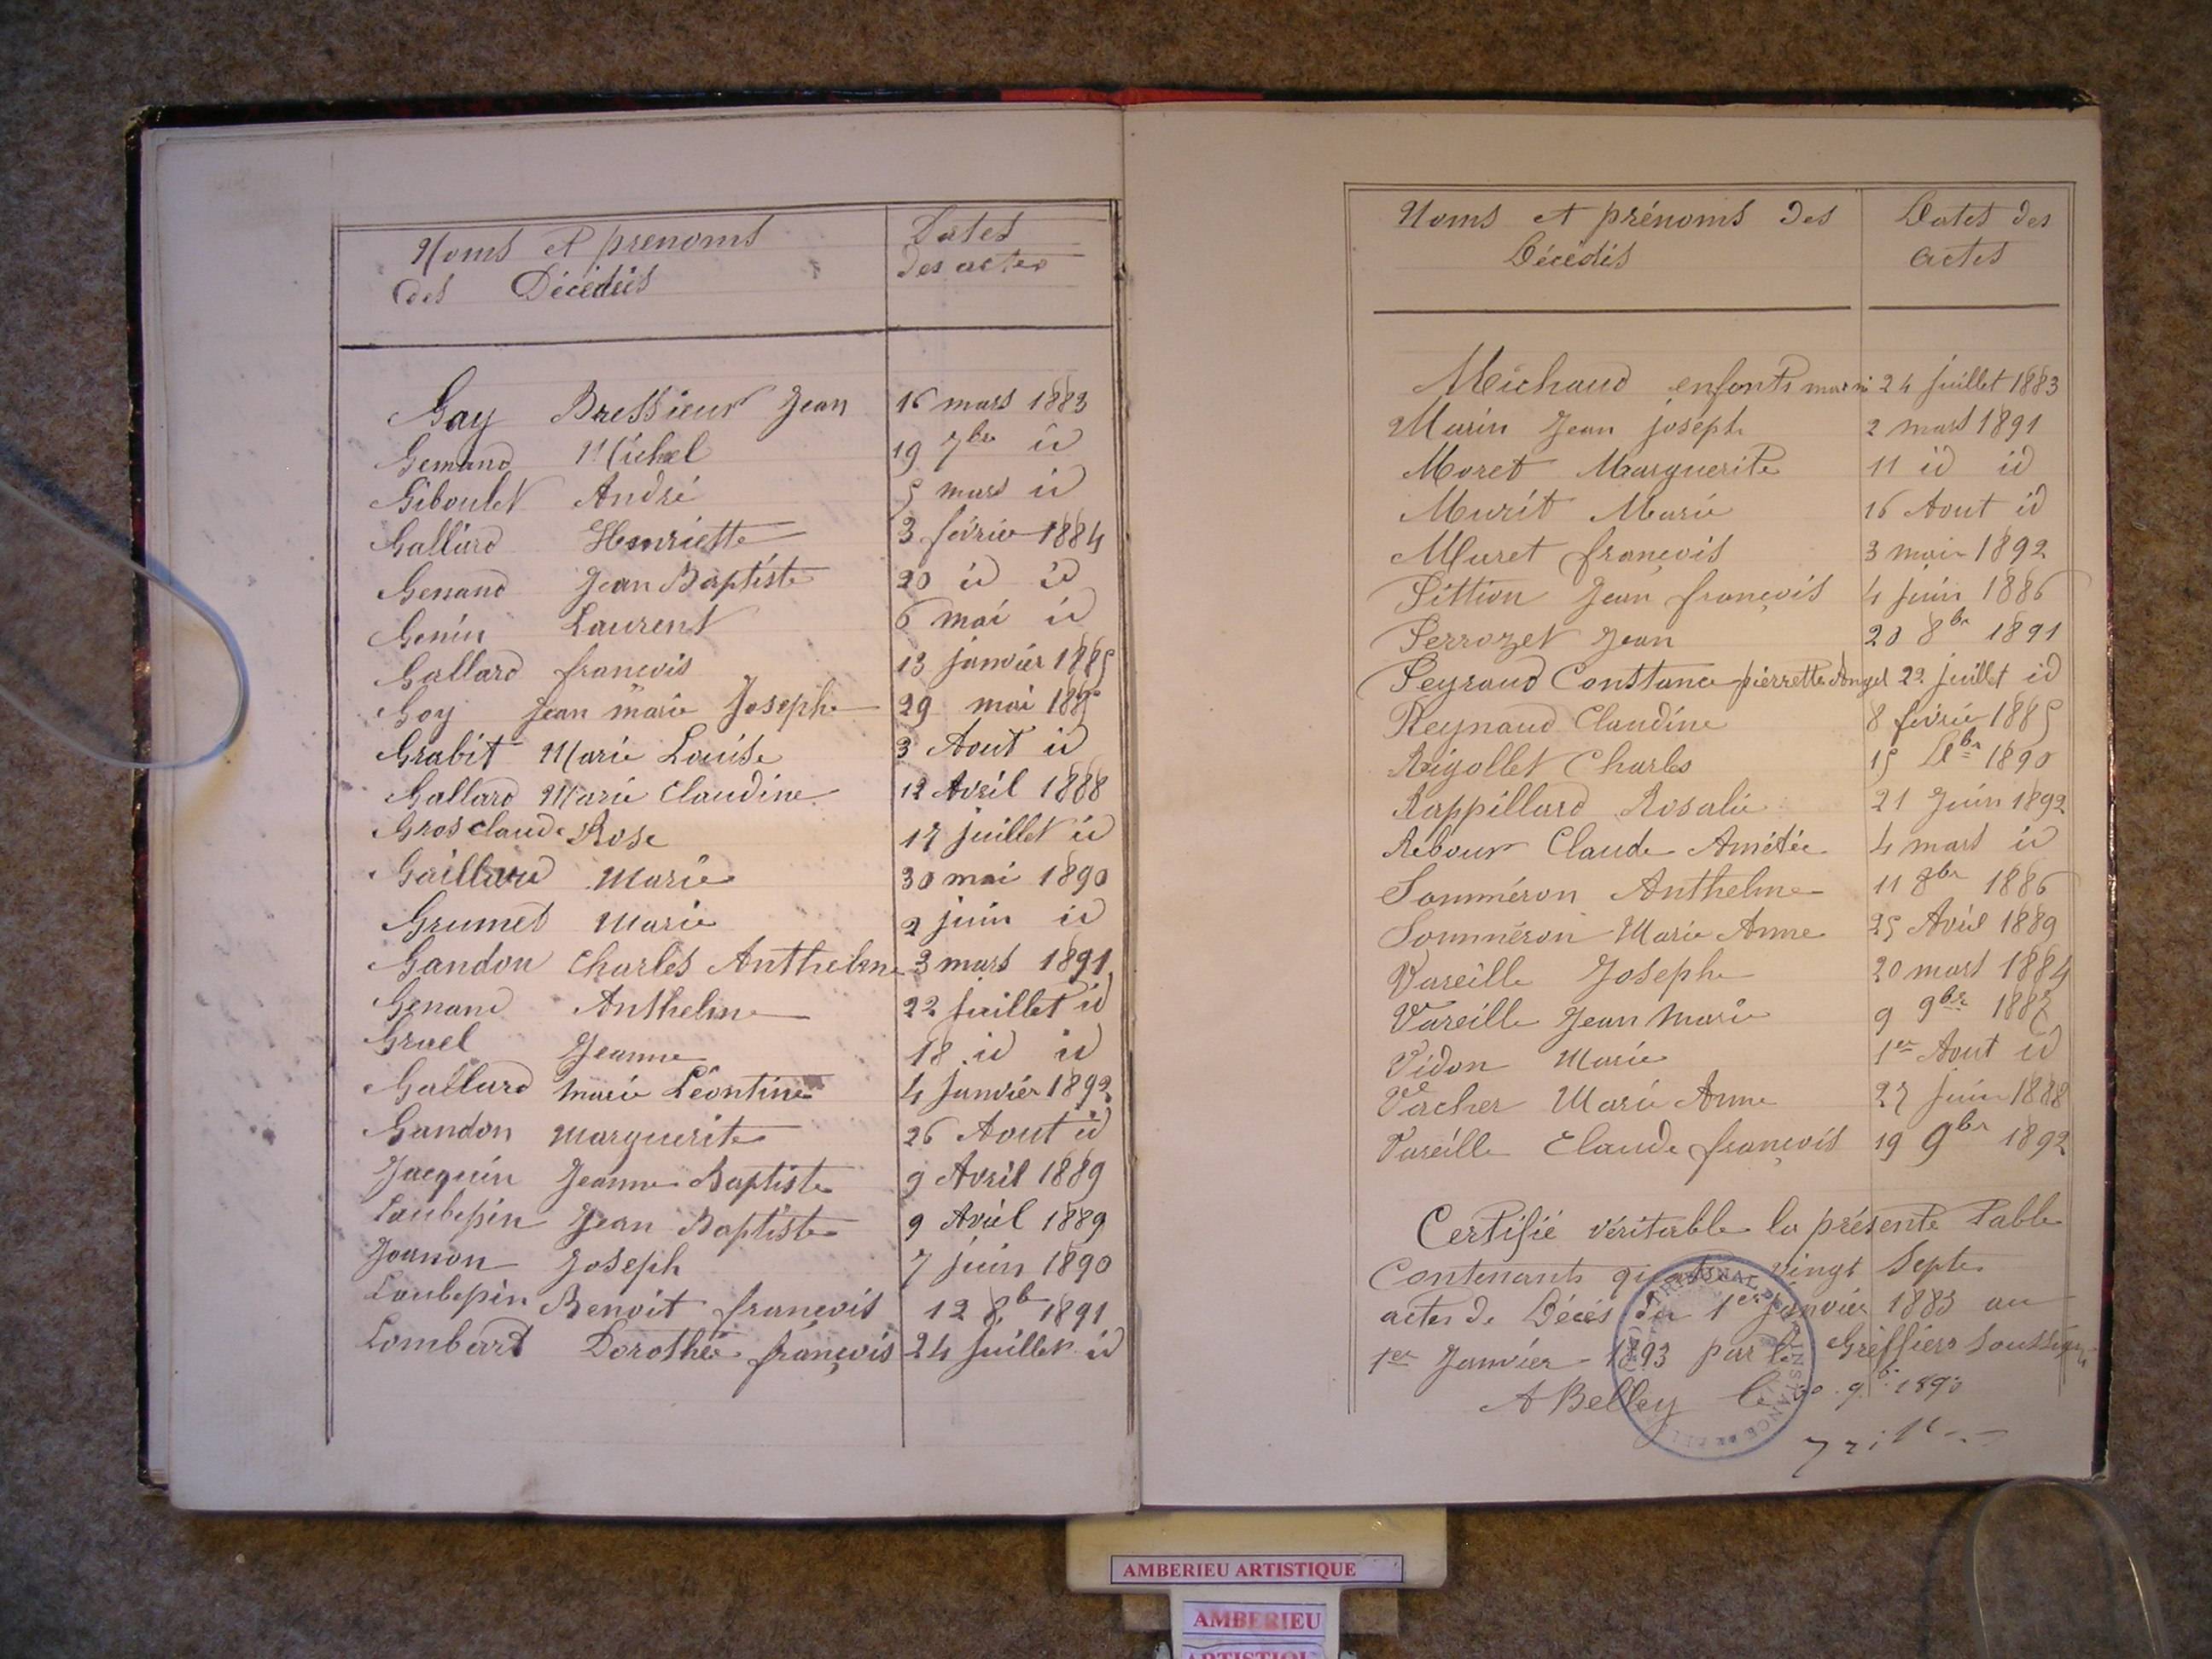 Noms et prenoms
des Décédés
Dates
des actes
Gay Bressieux Jean 16 mars 1883
Genand Michel 19 7bre id
Giboulet André 5 mars id
Gallard Henriette 3 février 1884
Genand Jean Baptiste 20 id id
Genin Laurent 6 mai id
Gallard françois 13 janvier 1885
Goy Jean marie Joseph 29 mai 1885
Grabit Marie Louise 3 Aout id
Gallard Marie Claudine 12 Avril 1888
Grosclaude Rose 17 juillet id
Gaillard Marie 30 mai 1890
Grumet Marie 2 juin id
Gandon Charles Anthelme 3 mars 1891
Genand Anthelme 22 juillet id
Gruel Jeanne 18 id id
Gallard marie Léontine 4 Janvier 1892
Gandon Marguerite 26 Aout id
Jacquin Jeanne Baptiste 9 Avril 1889
Loubepin Jean Baptiste 9 Avril 1889
Joanon Joseph 7 juin 1890
Loubepin Benoit françois 12 8b 1891
Lombard Dorothée françois 24 juillet id
Noms et prénoms des
Décédés
Dates des
actes
Michaud enfant 24 juillet 1883
Marin Jean joseph 2 mars 1891
Moret Marguerite 11 id id
Murit Marie 16 Aout id
Muret françois 3 1892
Pittion Jean françois 4 juin 1886
Perrozet Jean 20 8bre 1891
Peyraud Constance pierrette juillet id
Reynaud Claudine 8 février 1885
Rigollet Charles 15 1890
Rappillard Rosalie 21 Juin 1892
Rebour Claude Amédée 4 mars id
Somméron Anthelme 11 8bre 1886
Somméron Marie Anne 25 Avril 1889
Vareille Joseph 20 mars 1884
Vareille Jean Marie 9 9bre 1887
Vidon Marie 1er Aout id
Vercher Marie Anne 27 juin 1888
Vareille Claude françois 19 9bre 1892
Certifié véritable la présente Table
Contenant quatre vingt Sept
actes de Décès du 1er Janvier 1883 au
1er Janvier 1893 par le Greffier Soussigné
A Belley le
TRIBUNAL INSTANCE
AMBERIEU ARTISTIQUE
AMBERIEU
ARTISTIQUE